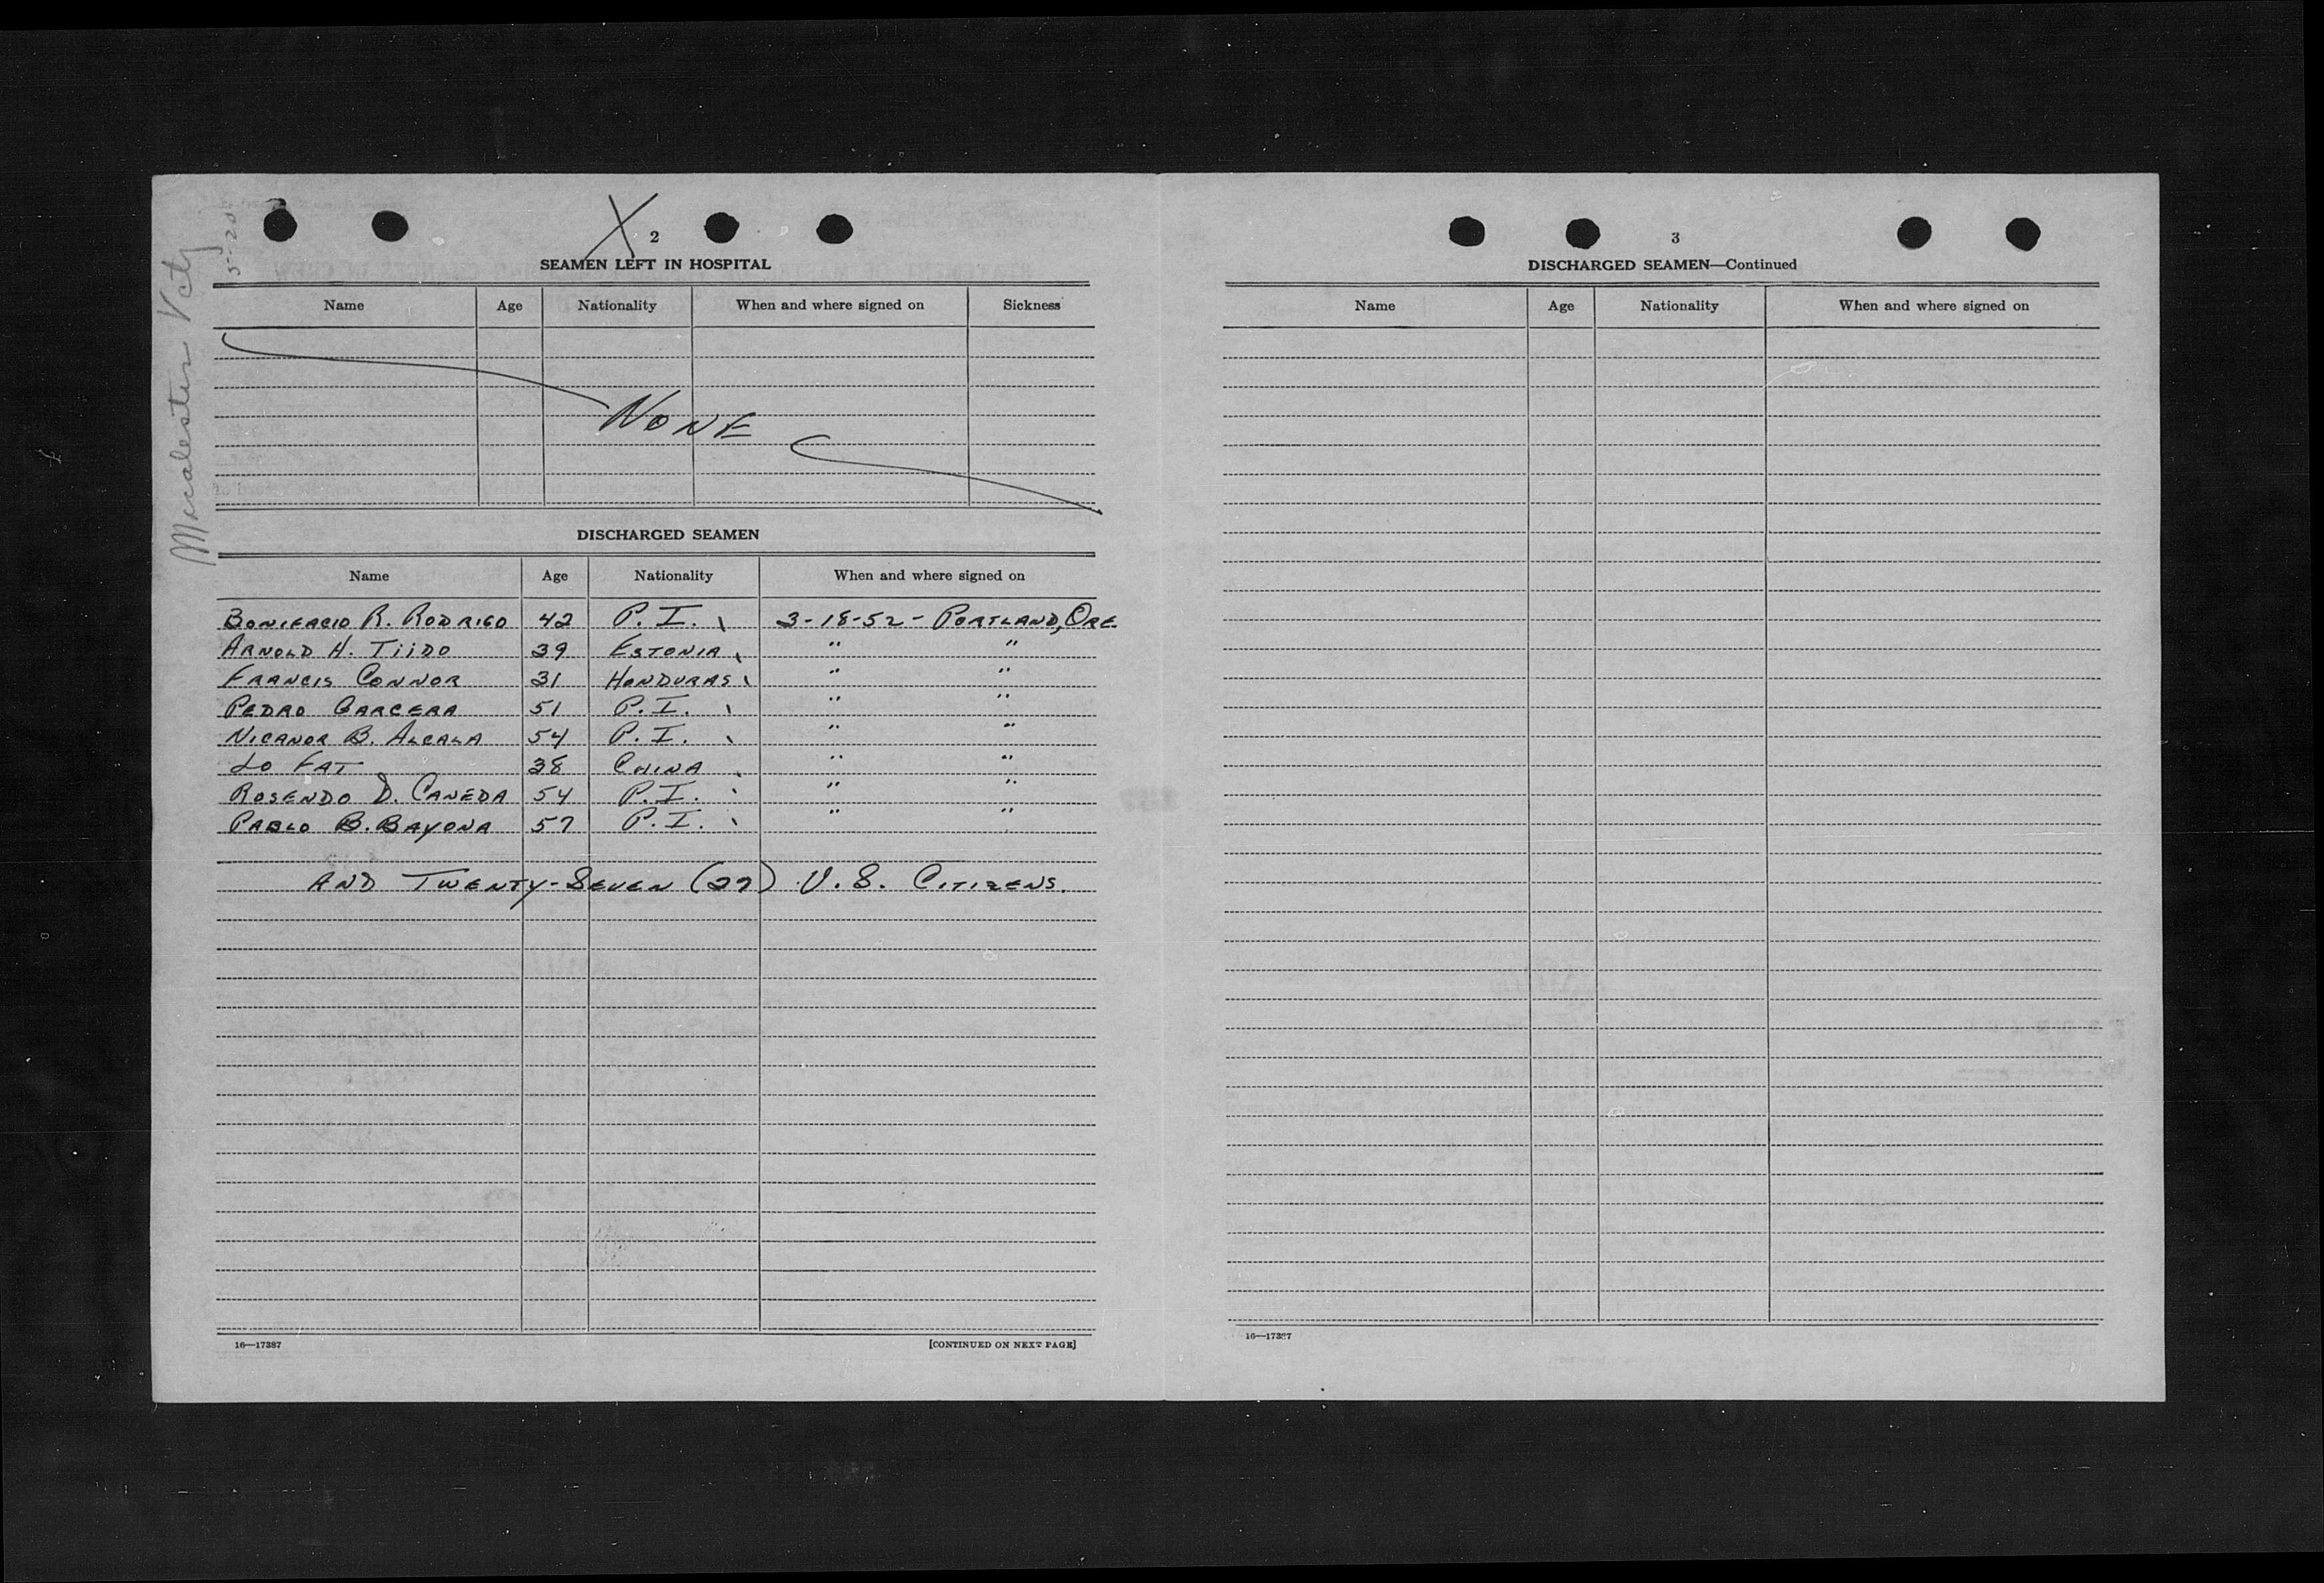 Macalester Vcty
5-20
2
SEAMEN LEFT IN HOSPITAL
Name Age Nationality When and where signed on Sickness
NONE
DISCHARGED SEAMEN
Name Age Nationality When and where signed on
BONIFACIO R. RODRIGO 42 P.I. 3-18-52 - PORTLAND, ORE.
ARNOLD H. TIIDO 39 ESTONIA " "
FRANCIS CONNOR 31 HONDURAS " "
PEDRO GARCERA 51 P.I. " "
NICANOR B. ALCALA 54 P.I. " "
LO FAT 38 CHINA " "
ROSENDO D. CANEDA 54 P.I. " "
PABLO B. BAYONA 57 P.I. " "
AND TWENTY-SEVEN (27) U.S. CITIZENS.
16—17387
[CONTINUED ON NEXT PAGE]
3
DISCHARGED SEAMEN—Continued
Name Age Nationality When and where signed on
16—17387